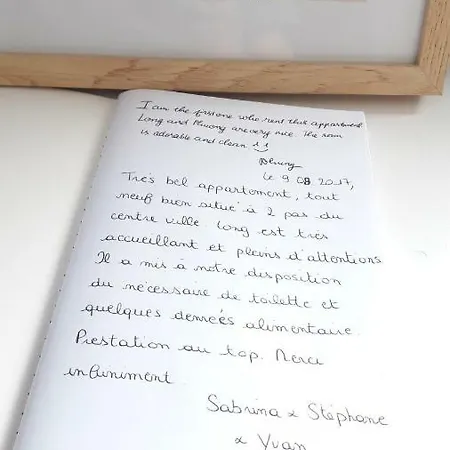 I am the firstone who rent that appartement
Long and Phuong are very nice. The room
is adorable and clean !!
Phuong
le 9.08 2017,
Très bel appartement, tout
neuf bien situé à 2 pas du
centre ville. Long est très
accueillant et pleins d'attentions
Il a mis à notre disposition
du nécessaire de toilette et
quelques denrées alimentaire.
Prestation au top. Merci
infiniment
Sabrina & Stéphane
& Yvan